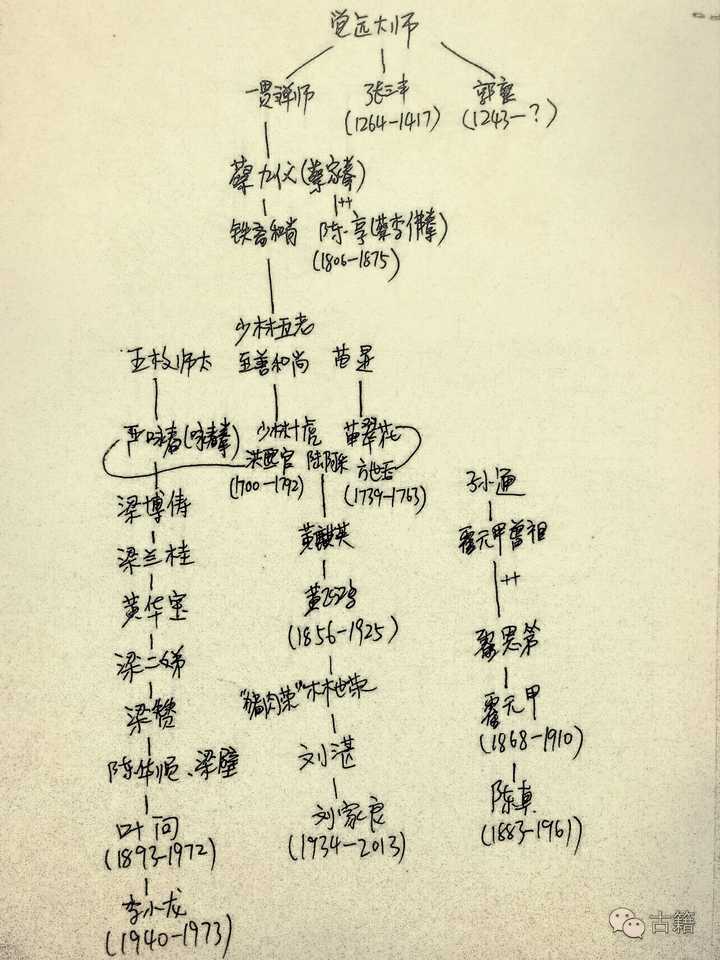 觉远大师
一贯禅师 张三丰 郭襄
(1264-1417) (1243-?)
蔡九仪(蔡家拳)
铁斋和尚 陈享(蔡李佛拳)
(1806-1875)
少林五老
五枚师太 至善和尚 苗显
严咏春(咏春拳) 少林十虎 苗翠花
洪熙官 陆阿采 方世玉
(1700-1792) (1739-1763)
孙通
梁博俦 黄麒英 霍元甲曾祖
梁兰桂 黄飞鸿
黄华宝 (1856-1925) 霍恩第
梁二娣 "猪肉荣"林世荣 霍元甲
(1868-1910)
梁赞 刘湛
陈华顺、梁璧 陈真
叶问 刘家良 (1883-1961)
(1893-1972) (1934-2013)
李小龙
(1940-1973)
古籍